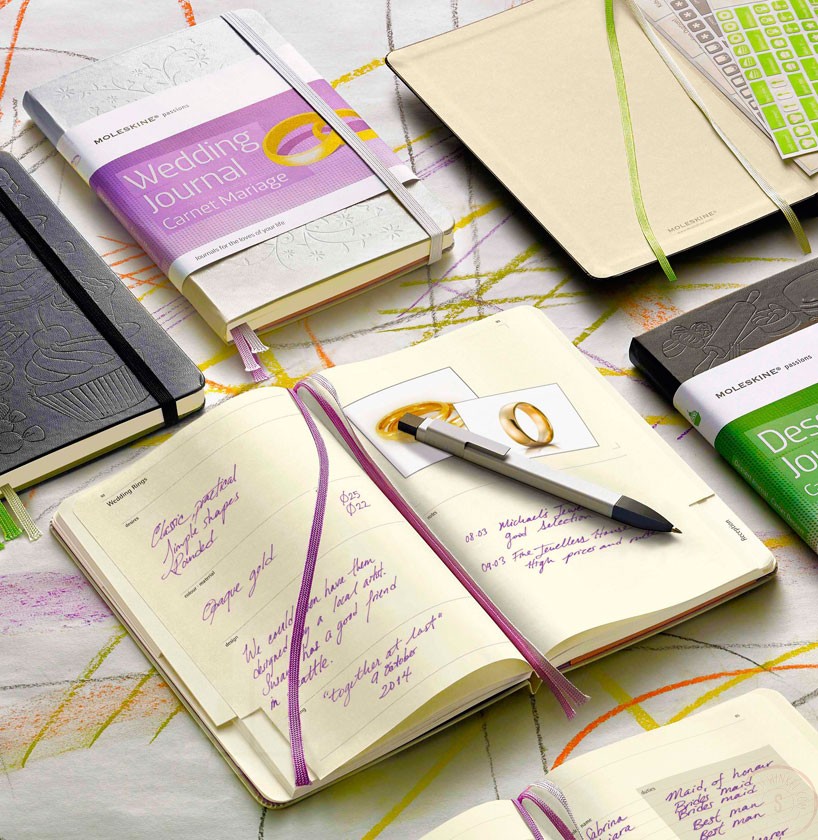 MOLESKINE® passions
Wedding
Journal
Carnet Mariage
Journals for the loves of your life
MOLESKINE®
MOLESKINE® passions
Wedding Rings
desires
Classic, practical
Simple shapes
Rounded
Ø25
Ø22
colour material
Opaque gold
design
We could even have them
designed by a local artist.
has a good friend
in Seattle.
"together at last"
9 October
2014
notes
08.03 Michael's
good selection
09.03 Fine Jewellers
High prices and
Reception
name
Sabrina
duties
Maid of honour
Brides maid
Brides maid
Best man
Best man